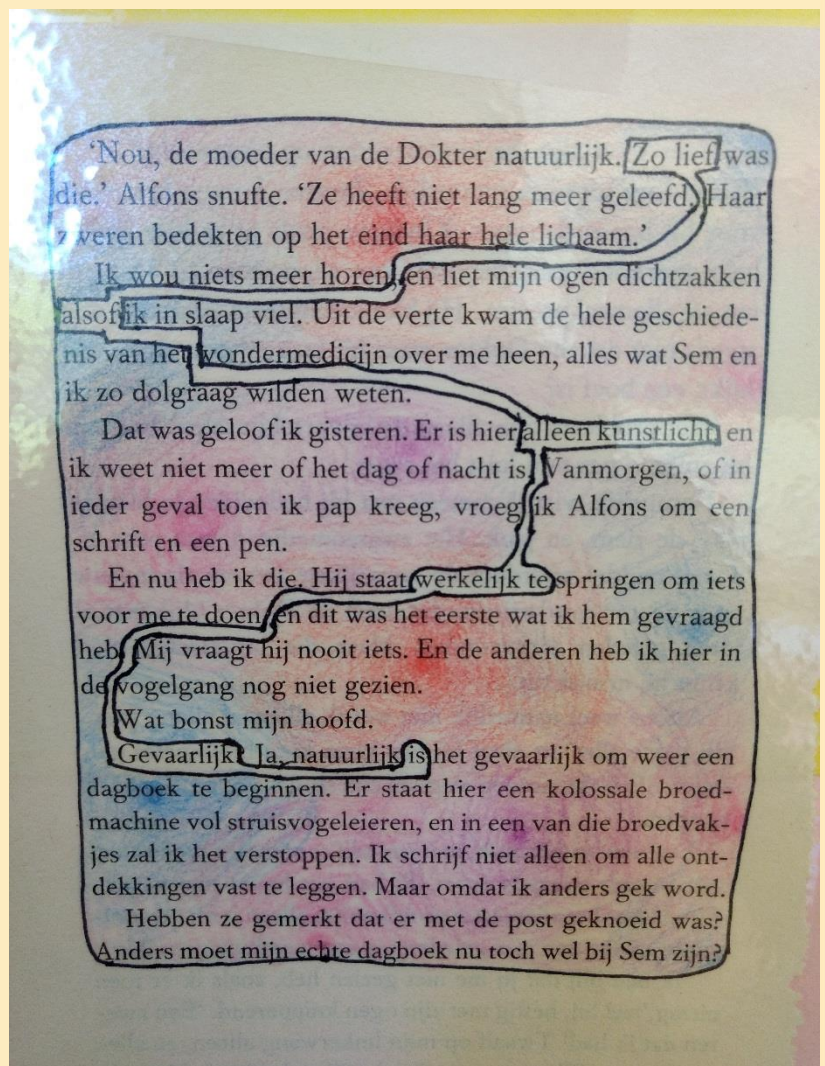 'Nou, de moeder van de Dokter natuurlijk. Zo lief was
die.' Alfons snufte. 'Ze heeft niet lang meer geleefd. Haar
zweren bedekten op het eind haar hele lichaam.'
Ik wou niets meer horen, en liet mijn ogen dichtzakken
alsof ik in slaap viel. Uit de verte kwam de hele geschiede-
nis van het wondermedicijn over me heen, alles wat Sem en
ik zo dolgraag wilden weten.
Dat was geloof ik gisteren. Er is hier alleen kunstlicht, en
ik weet niet meer of het dag of nacht is. Vanmorgen, of in
ieder geval toen ik pap kreeg, vroeg ik Alfons om een
schrift en een pen.
En nu heb ik die. Hij staat werkelijk te springen om iets
voor me te doen, en dit was het eerste wat ik hem gevraagd
heb. Mij vraagt hij nooit iets. En de anderen heb ik hier in
de vogelgang nog niet gezien.
Wat bonst mijn hoofd.
Gevaarlijk? Ja, natuurlijk is het gevaarlijk om weer een
dagboek te beginnen. Er staat hier een kolossale broed-
machine vol struisvogeleieren, en in een van die broedvak-
jes zal ik het verstoppen. Ik schrijf niet alleen om alle ont-
dekkingen vast te leggen. Maar omdat ik anders gek word.
Hebben ze gemerkt dat er met de post geknoeid was?
Anders moet mijn echte dagboek nu toch wel bij Sem zijn?